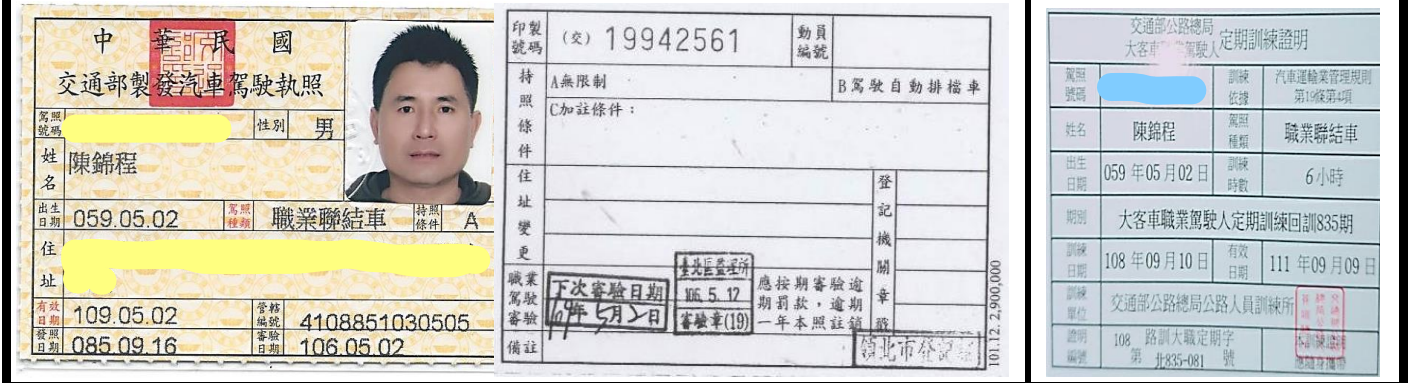 中華民國
交通部製發汽車駕駛執照
駕照號碼
性別 男
姓名 陳錦程
出生日期 059.05.02 駕照種類 職業聯結車 持照條件 A
住址
有效日期 109.05.02 管轄編號 4108851030505
發照日期 085.09.16 審驗日期 106.05.02
印製號碼 (交) 19942561 動員編號
持照條件 A無限制 B駕駛自動排檔車
C加註條件：
住址變更 登記機關章戳
職業駕駛審驗 下次審驗日期 109年5月2日
臺北區監理所
106.5.12
審驗章(19)
應按期審驗逾
期罰款，逾期
一年本照註銷
備註
101.12. 2,900,000
交通部公路總局
大客車職業駕駛人定期訓練證明
駕照號碼 訓練依據 汽車運輸業管理規則第19條第4項
姓名 陳錦程 駕照種類 職業聯結車
出生日期 059 年05 月02 日 訓練時數 6小時
期別 大客車職業駕駛人定期訓練回訓835期
訓練日期 108 年09 月10 日 有效日期 111 年09 月09 日
訓練單位 交通部公路總局公路人員訓練所
證明編號 108 路訓大職定期字
第 北835-081 號